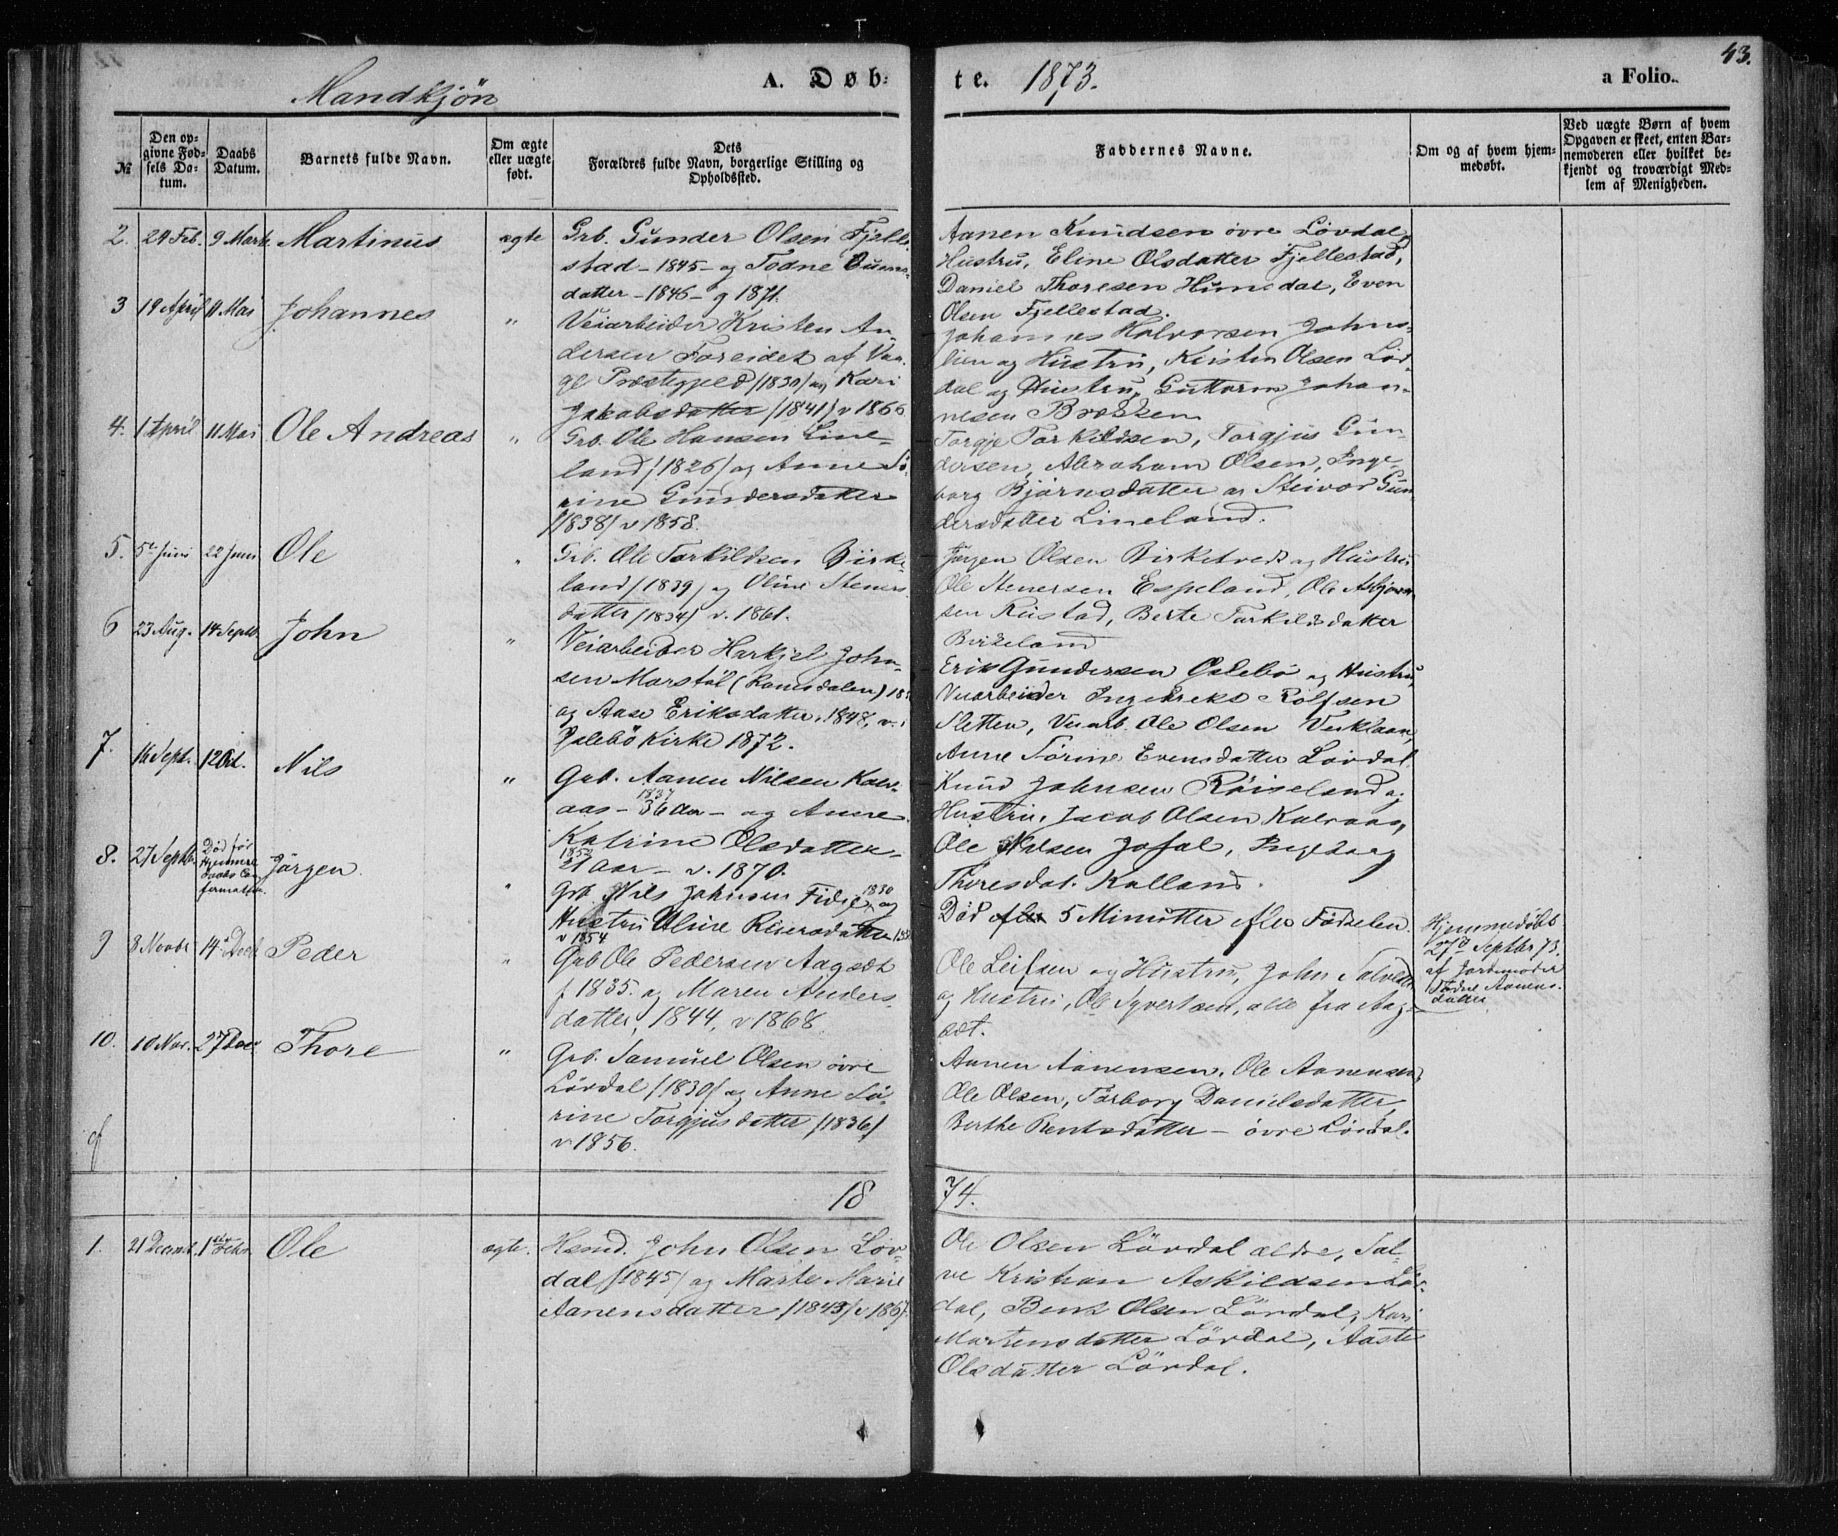 43.
Mandkjøn
A. Døb-
te. 1873.
a Folio.
№
Den op-
givne Fød-
sels Da-
tum.
Daabs
Datum.
Barnets fulde Navn.
Om ægte
eller uægte
født.
Dets
Forældres fulde Navn, borgerlige Stilling og
Opholdssted.
Faddernes Navne.
Om og af hvem hjem-
medøbt.
Ved uægte Børn af hvem
Opgaven er skeet, enten Bar-
nemoderen eller hvilket be-
kjendt og troværdigt Med-
lem af Menigheden.
2. 24 Feb. 9 Marts Martinus ægte
Grb. Gunder Olsen Fjelle-
stad - 1845 - og Todne
datter - 1846 - g 1871.
Aanen Knudsen övre Lövdal og
Hustru, Eline Olsdatter Fjellestad,
Daniel Thoresen Hunsdal, Even
Olsen Fjellestad.
3 19 April 11 Mai Johannes "
Veiarbeider Kristen An-
dersen Foreidet af
Præstegjeld /1830/ og Kari
Jakobsdatter /1841/ v 1866
Johannes Halvorsen Johns-
lien og Hustru, Kirsten Olsen Löv
dal og Hustru, Guttorm Johan-
nesen Brækken
4. 1 April 11 Mai Ole Andreas "
Grb. Ole Hansen Line-
land /1826/ og Anne Sö-
rine Gundersdatter
/1838/ v 1858.
Torgje Torkildsen, Torgjus Gun-
dersen, Abraham Olsen, Inge-
borg Björnsdatter og Steivor Gun
dersdatter Lineland.
5. 5te Juni 22 Juni Ole "
Grb. Ole Torkildsen Birke-
land /1839/ og Oline Steners-
datter /1834/ v. 1861.
Jörgen Olsen Birketvedt og Hustru
Ole Stenersen Espeland, Ole Asbjörn
sen Rustad, Berte Torkildsdatter
Birkeland
6 23 Aug. 14 Septb. John "
Veiarbeider Harkjel John-
sen Marstöl (Romsdalen)
og Aase Eriksdatter, 1848, v. i
Öslebö Kirke 1872.
Erik Gundersen Öslebö og Hustru,
Veiarbeider Ingebreks Rolfsen
Sletten, Veiarb. Ole Olsen
Anne Sörine Evensdatter Lövdal
7. 16 Sept. 12 Oct. Nils "
Grb. Aanen Nilsen Kalv-
1837
aas - 36 Aar - og Anne
Katrine Olsdatter -
1852
21 Aar - v. 1870.
Knud Johnsen Röiseland og
Hustru, Jacob Olsen Kalvaas,
Ole Nilsen Josal, Ingeborg
Thoresdat. Kalland.
8. 27 Septb. Död för
Hjemme
daabs Con
firmation. Jörgen. "
Grb. Nils Johnsen Fidje 1830 og
Hustru Oline Reiersdatter
v 1854
Död 5 Minutter efter Födselen.
Hjemmedöbt
27d Septbr 73.
af Jordemoder
Todne Aanens-
datter
9 8 Novbr 14de Decb Peder "
Grb Ole Pedersen Aagedt
f 1835. og Maren Anders-
datter, 1844, v 1868.
Ole Leifsen og Hustru, John Salvesen
og Hustru, Ole Syvertsen, alle fra Aag-
edt.
10. 10 Nov. 27 Decr Thore "
Grb. Samuel Olsen övre
Lövdal /1830/ og Anne Sö-
rine Torgjusdatter /1836/
v 1856.
Aanen Aanensen, Ole Aanensen,
Ole Olsen, Torborg Danielsdatter,
Berthe Bentsdatter - övre Lövdal.
18
74.
1. 21 Decemb. 1ste Febr. Ole ægte.
Hsmd. John Olsen Löv-
dal /1845/ og Marte Marie
Aanensdatter /1843/ v 1867.
Ole Olsen Lövdal ældre, Sal-
ve Kristian Askildsen Löv-
dal, Bent Olsen Lövdal, Kari
Mortensdatter Lövdal, Aaste
Olsdatter Lövdal.